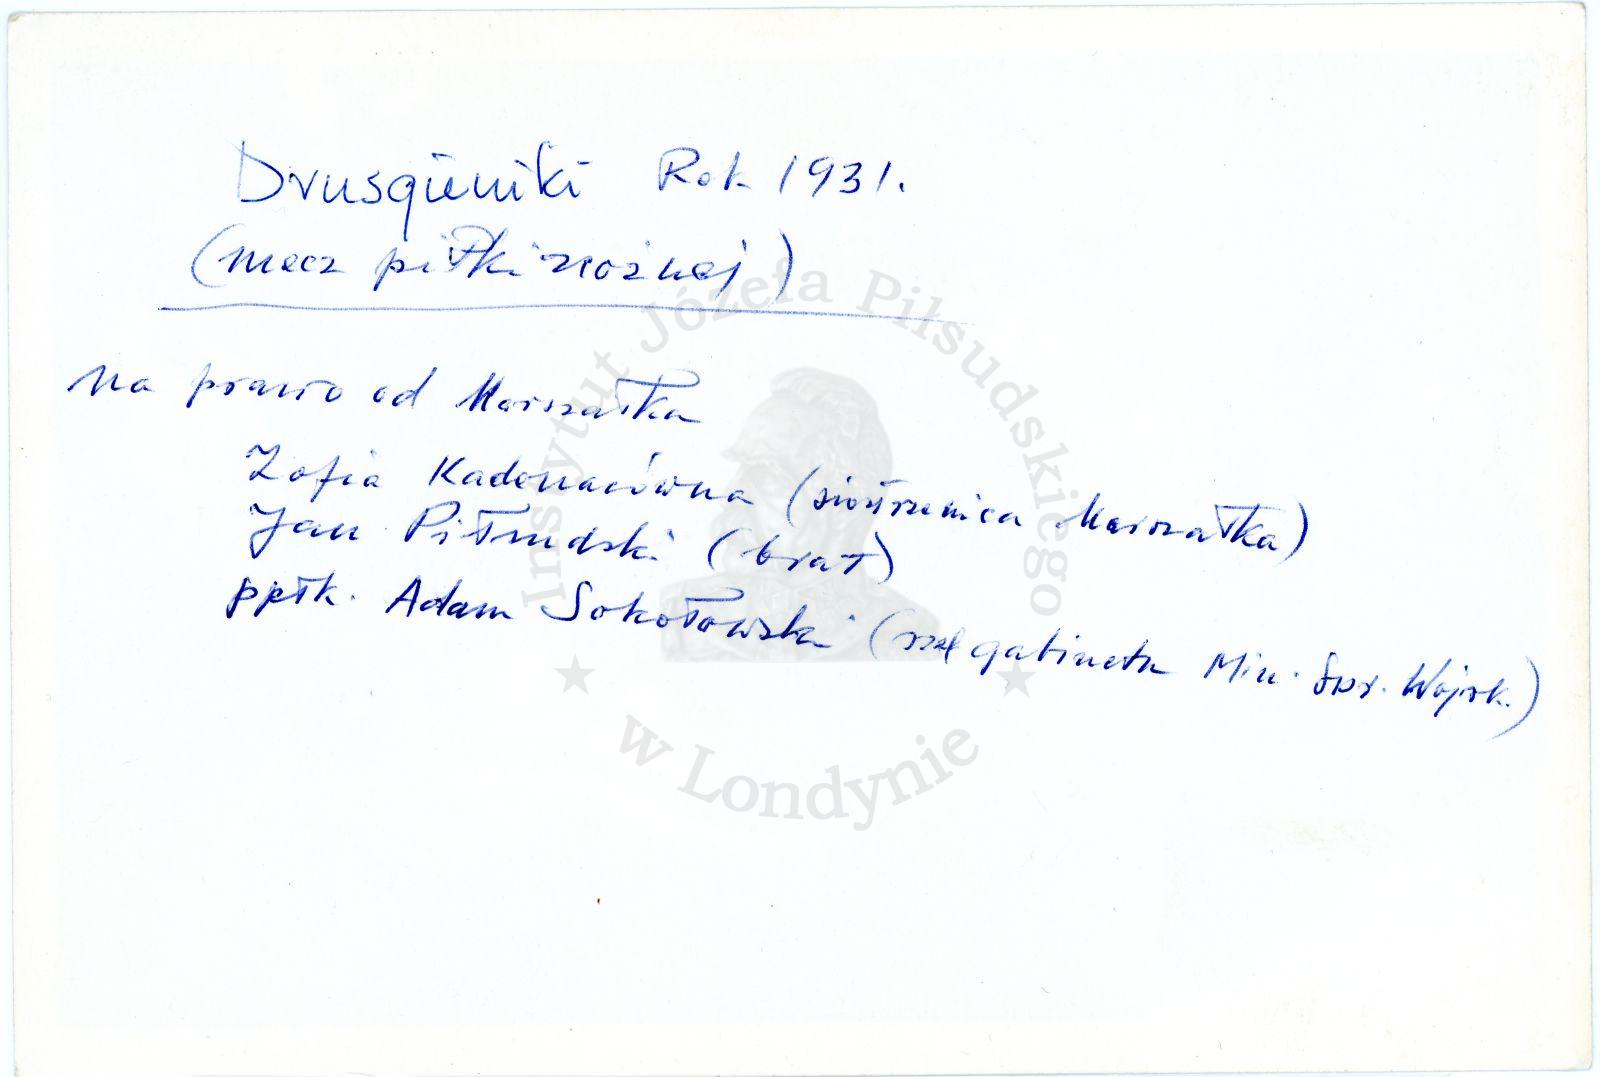 Drusgieniki Rok 1931.
(mecz piłki nożnej)
na prawo od Marszałka
Zofia Kadenacówna (siostrzenica Marszałka)
Jan Piłsudski (brat)
ppłk. Adam Sokołowski (szef gabinetu Min. Spr. Wojsk.)
Instytut Józefa Piłsudskiego
w Londynie